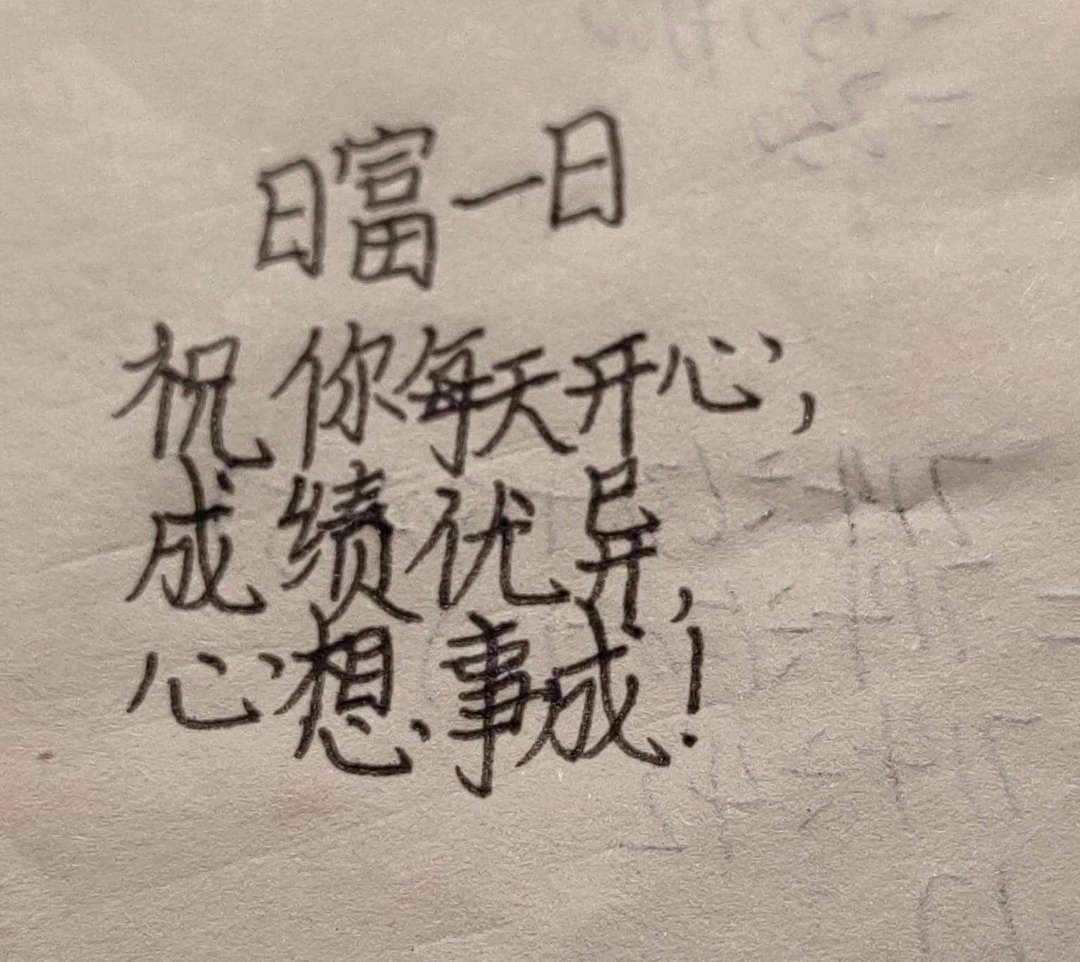 日富一日
祝你每天开心,
成绩优异,
心想事成!